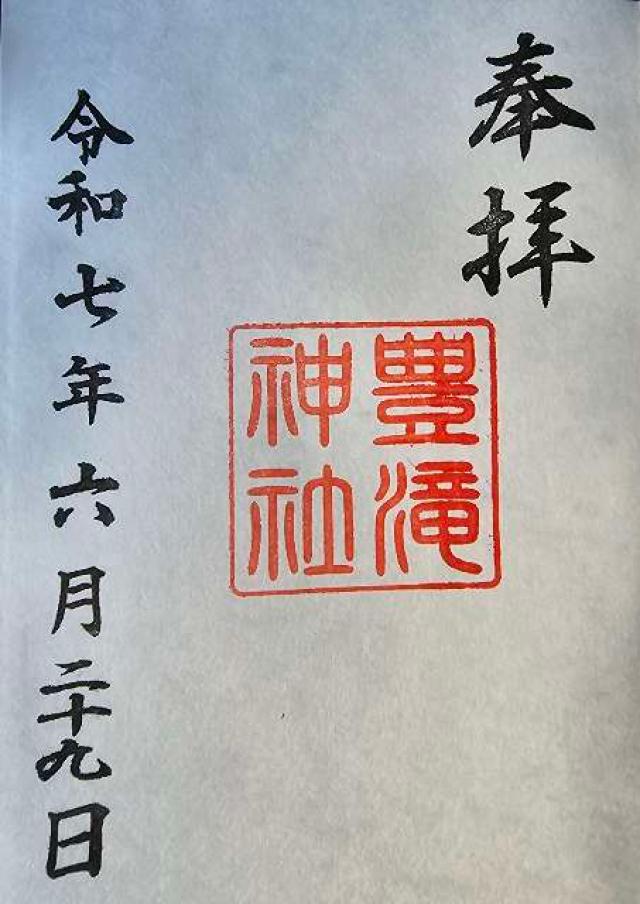 奉拝
豊滝
神社
令和七年六月二十九日